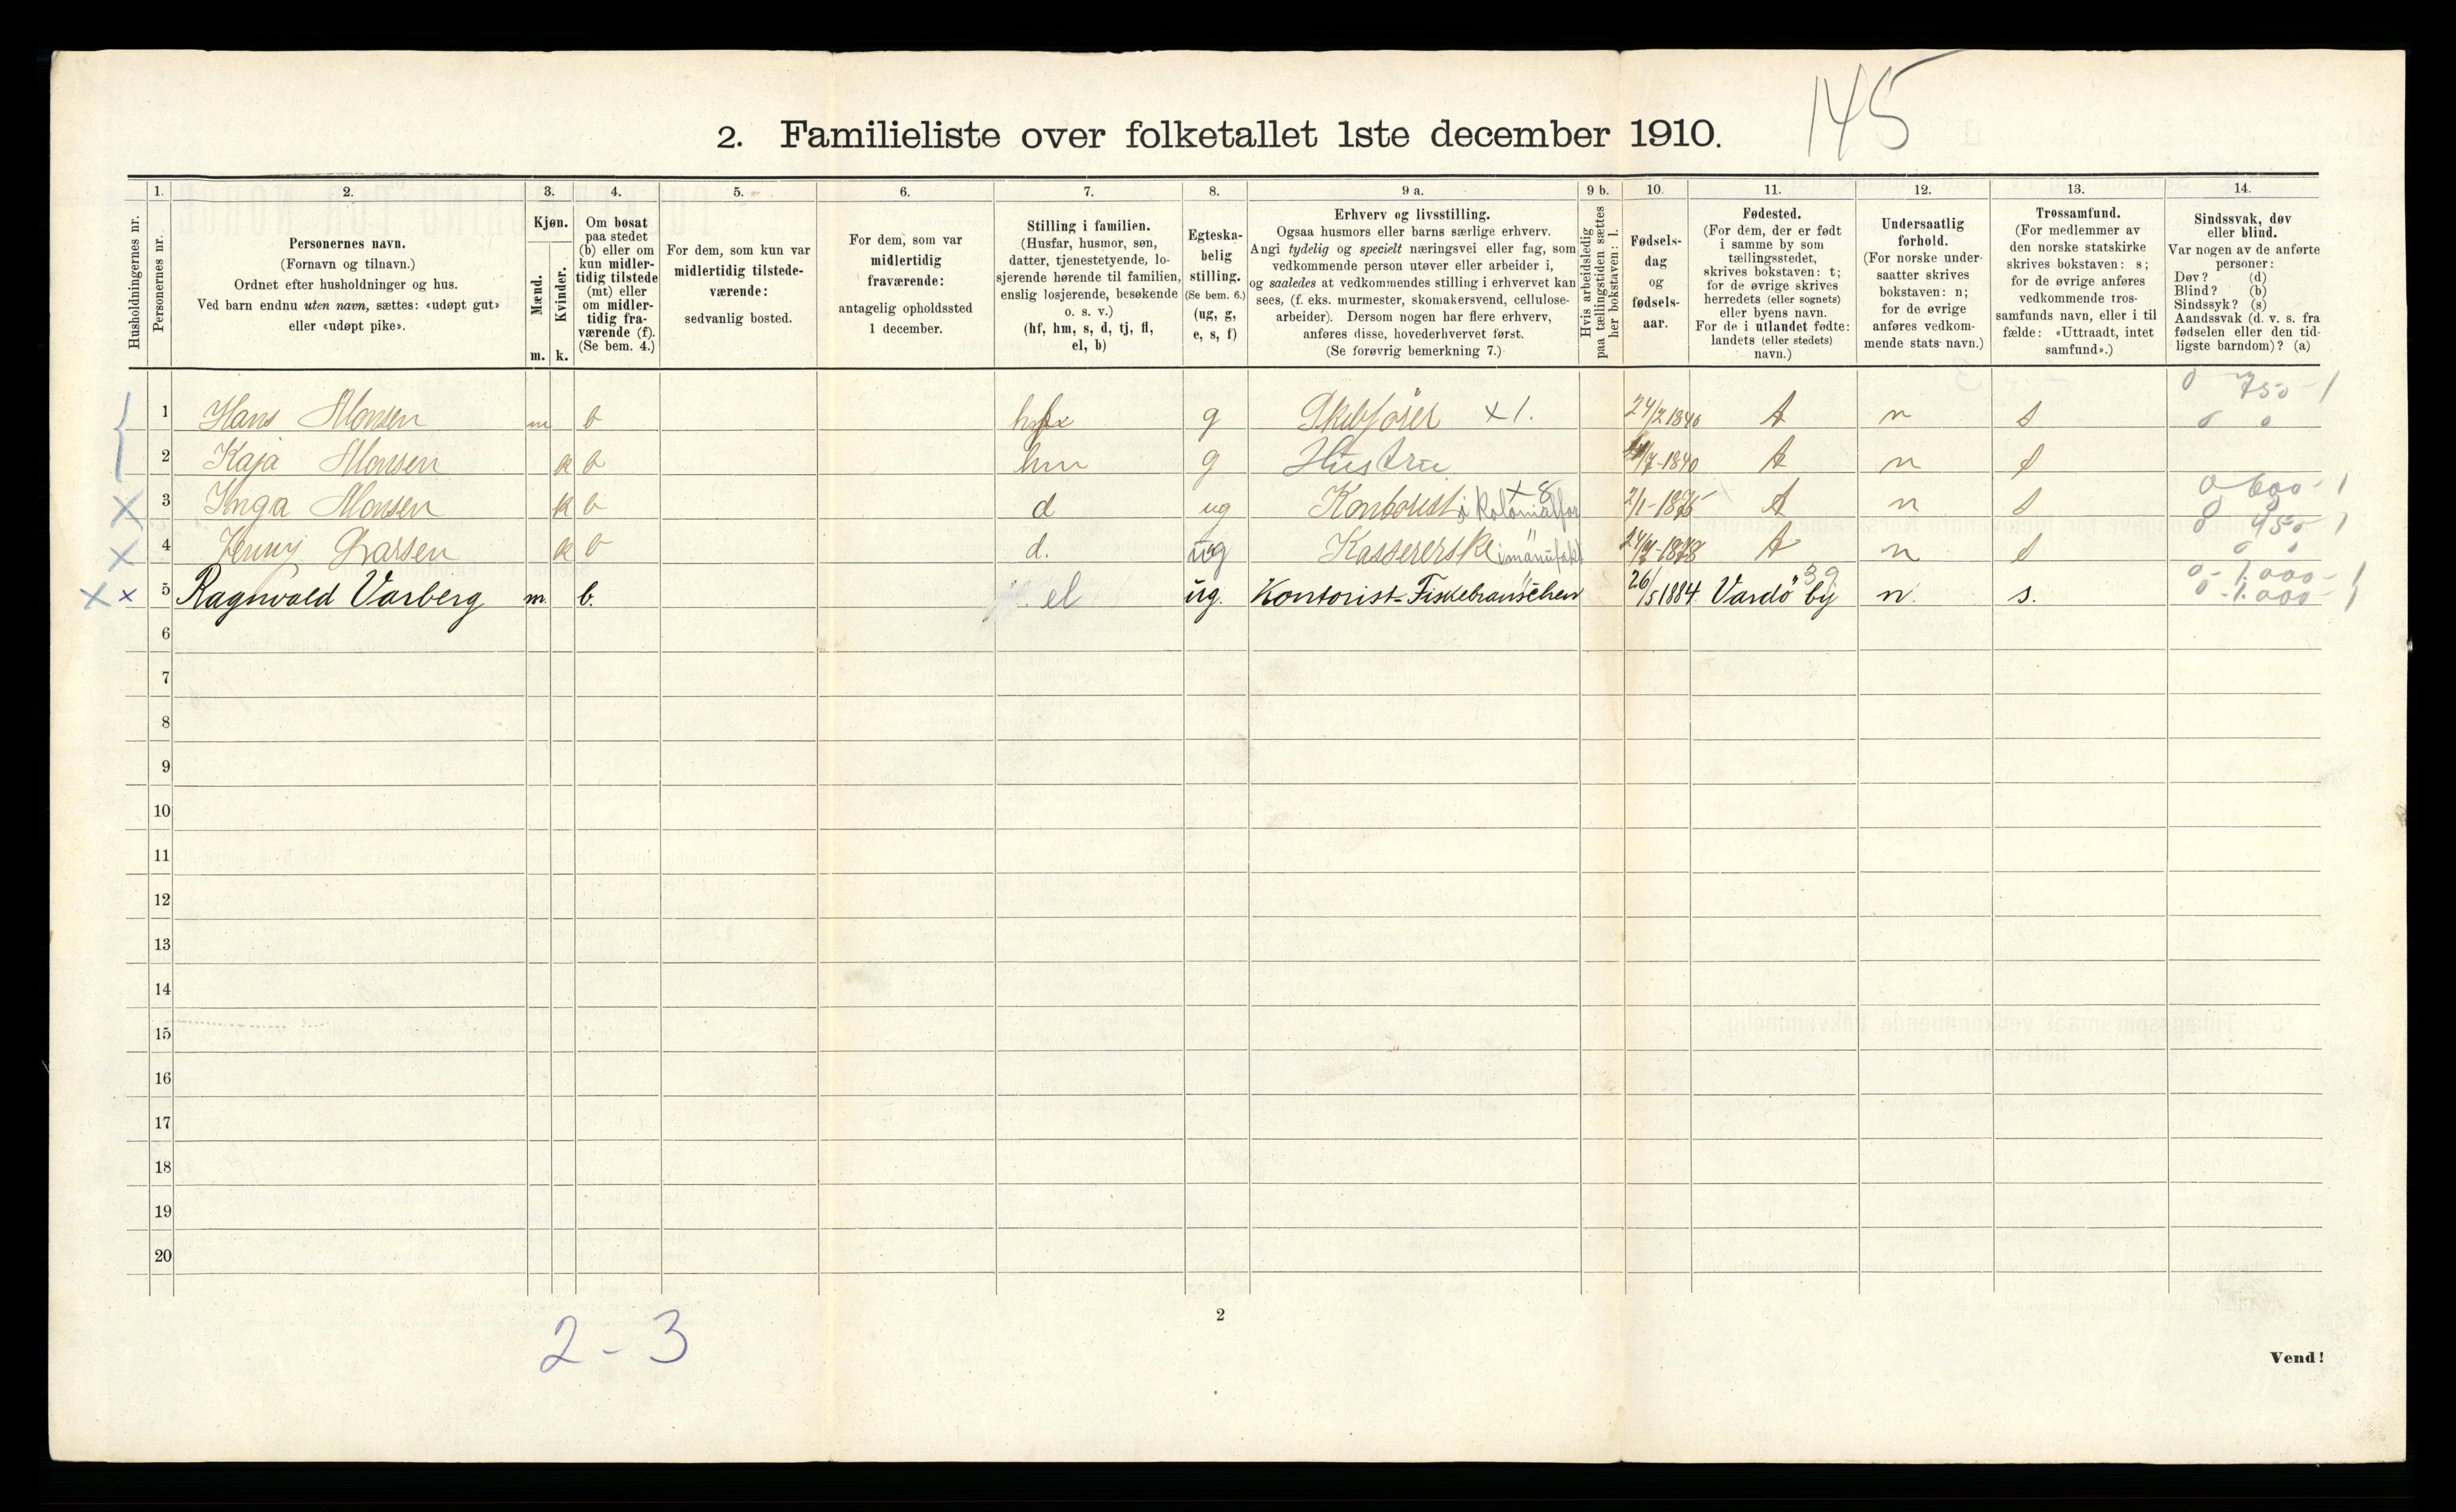 145
2. Familieliste over folketallet 1ste december 1910.
1. 2. 3. 4. 5. 6. 7. 8. 9 a. 9 b. 10. 11. 12. 13. 14.
Husholdningernes nr.
Personernes nr.
Personernes navn.
(Fornavn og tilnavn.)
Ordnet efter husholdninger og hus.
Ved barn endnu uten navn, sættes: «udøpt gut»
eller «udøpt pike».
Kjøn.
Mænd.
Kvinder.
m. k.
Om bosat
paa stedet
(b) eller om
kun midler-
tidig tilstede
(mt) eller
om midler-
tidig fra-
værende (f).
(Se bem. 4.)
For dem, som kun var
midlertidig tilstede-
værende:
sedvanlig bosted.
For dem, som var
midlertidig
fraværende:
antagelig opholdssted
1 december.
Stilling i familien.
(Husfar, husmor, søn,
datter, tjenestetyende, lo-
sjerende hørende til familien,
enslig losjerende, besøkende
o. s. v.)
(hf, hm, s, d, tj, fl,
el, b)
Egteska-
belig
stilling.
(Se bem. 6.)
(ug, g,
e, s, f)
Erhverv og livsstilling.
Ogsaa husmors eller barns særlige erhverv.
Angi tydelig og specielt næringsvei eller fag, som
vedkommende person utøver eller arbeider i,
og saaledes at vedkommendes stilling i erhvervet kan
sees, (f. eks. murmester, skomakersvend, cellulose-
arbeider). Dersom nogen har flere erhverv,
anføres disse, hovederhvervet først.
(Se forøvrig bemerkning 7.)
Hvis arbeidsledig
paa tællingstiden sættes
her bokstaven: l.
Fødsels-
dag
og
fødsels-
aar.
Fødested.
(For dem, der er født
i samme by som
tællingsstedet,
skrives bokstaven: t;
for de øvrige skrives
herredets (eller sognets)
eller byens navn.
For de i utlandet fødte:
landets (eller stedets)
navn.)
Undersaatlig
forhold.
(For norske under-
saatter skrives
bokstaven: n;
for de øvrige
anføres vedkom-
mende stats navn.)
Trossamfund.
(For medlemmer av
den norske statskirke
skrives bokstaven: s;
for de øvrige anføres
vedkommende tros-
samfunds navn, eller i til
fælde: «Uttraadt, intet
samfund».)
Sindssvak, døv
eller blind.
Var nogen av de anførte
personer:
Døv? (d)
Blind? (b)
Sindssyk? (s)
Aandssvak (d. v. s. fra
fødselen eller den tid-
ligste barndom)? (a)
0 750 - 1
1 Hans Monsen m b g Skibfører x 1. 24/2 1840 t n s 0 0
2 Kaja Monsen k b hm g Hustru 7-1840 t n s
3 Inga Monsen k b d ug Kontorist i Kolonialfor x 8 2/1-1875 t n s 0 600 - 1
4 Jenny Larsen k b d. ug Kassererske i manufakt 1878 t n s 0 450 - 1
5 Ragnvald Varberg m. b. el ug. Kontorist-Fiskebranschen 26/5 1884 Vardö by n s. 0 - 1.000 - 1
0 - 1.000 - 1
6
7
8
9
10
11
12
13
14
15
16
17
18
19
20
2
2 - 3
Vend!